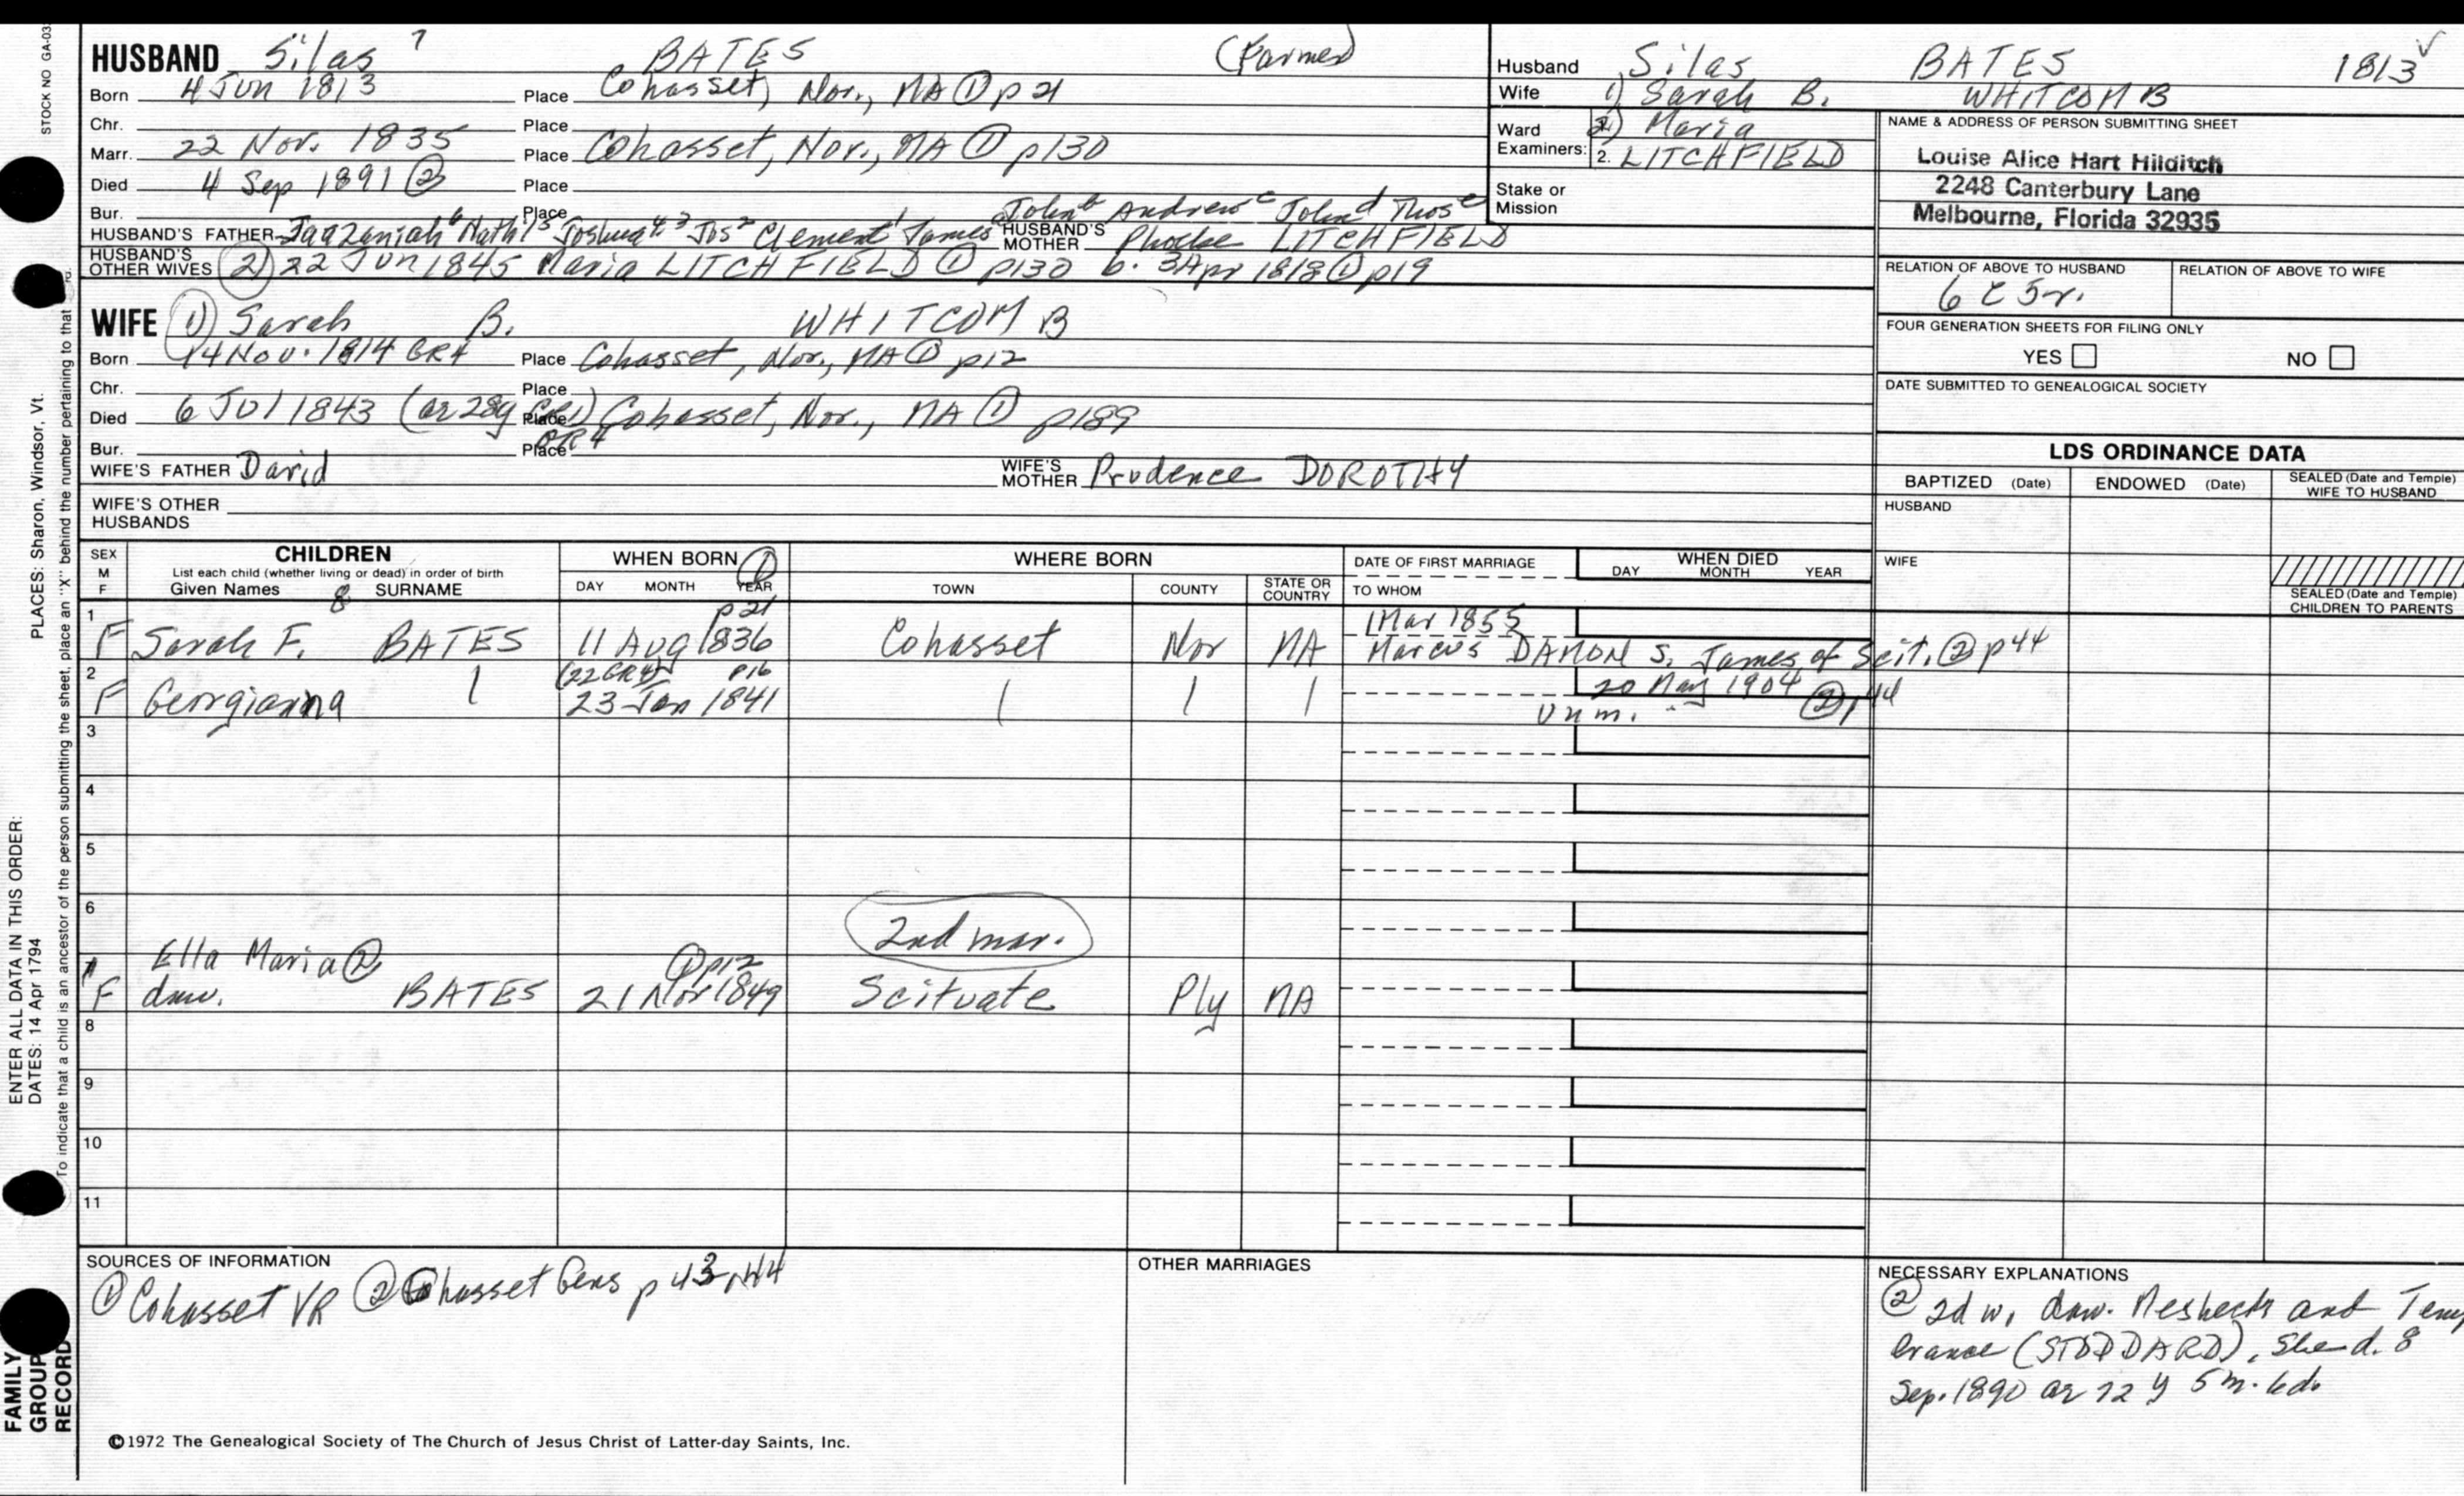 STOCK NO GA-03
HUSBAND Silas 7 BATES (Farmer)
Born 4 Jun 1813 Place Cohasset, Nor., MA ① p 21
Chr. Place
Marr. 22 Nov. 1835 Place Cohasset, Nor., MA ① p130
Died 4 Sep 1891 ② Place
Bur. Place
HUSBAND'S FATHER Jaazaniah 6 Nath'l 5 Joshua 4, 3 Jos 2 Clement 1 James a John b Andrew c John d Thos e HUSBAND'S MOTHER Phoebe LITCHFIELD
HUSBAND'S OTHER WIVES (2) 22 Jun 1845 Maria LITCHFIELD ① p130 b. 3 Apr 1818 ① p19
WIFE (1) Sarah B. WHITCOMB
Born 14 Nov. 1814 GR4 Place Cohasset, Nor., MA ① p12
Chr. Place
Died 6 Jul 1843 (ae 28y GR1) Place Cohasset, Nor., MA ① p189
GR4
Bur. Place
WIFE'S FATHER David WIFE'S MOTHER Prudence DOROTHY
WIFE'S OTHER HUSBANDS
Husband Silas BATES 1813 ✓
Wife 1) Sarah B. WHITCOMB
Ward 2) Maria
Examiners: 2. LITCHFIELD
Stake or Mission
NAME & ADDRESS OF PERSON SUBMITTING SHEET
Louise Alice Hart Hilditch
2248 Canterbury Lane
Melbourne, Florida 32935
RELATION OF ABOVE TO HUSBAND RELATION OF ABOVE TO WIFE
6 C 5 r.
FOUR GENERATION SHEETS FOR FILING ONLY
YES NO
DATE SUBMITTED TO GENEALOGICAL SOCIETY
LDS ORDINANCE DATA
BAPTIZED (Date) ENDOWED (Date) SEALED (Date and Temple) WIFE TO HUSBAND
HUSBAND
WIFE
SEALED (Date and Temple) CHILDREN TO PARENTS
SEX M F CHILDREN WHEN BORN ① WHERE BORN DATE OF FIRST MARRIAGE WHEN DIED
List each child (whether living or dead) in order of birth
Given Names 8 SURNAME DAY MONTH YEAR TOWN COUNTY STATE OR COUNTRY TO WHOM DAY MONTH YEAR
1 p 21 1 Mar 1855
F Sarah F. BATES 11 Aug 1836 Cohasset Nor MA Marcus DAMON S. James, of Scit. ② p44
2 (22 GR4) p16 20 May 1904
F Georgianna 23 Jan 1841 Unm. ②, 44
3
4
5
6
2nd mar.
7 Ella Maria ② ① p12
F daw. BATES 21 Nov 1849 Scituate Ply MA
8
9
10
11
SOURCES OF INFORMATION
① Cohasset VR ② Cohasset Gens p 43, 44
OTHER MARRIAGES
NECESSARY EXPLANATIONS
② 2d w, daw. Meshech and Tem
perance (STODDARD), She d. 8
Sep. 1890 ae 72 y 5 m. 6d.
©1972 The Genealogical Society of The Church of Jesus Christ of Latter-day Saints, Inc.
FAMILY GROUP RECORD
ENTER ALL DATA IN THIS ORDER:
DATES: 14 Apr 1794
PLACES: Sharon, Windsor, Vt.
To indicate that a child is an ancestor of the person submitting the sheet, place an "X" behind the number pertaining to that